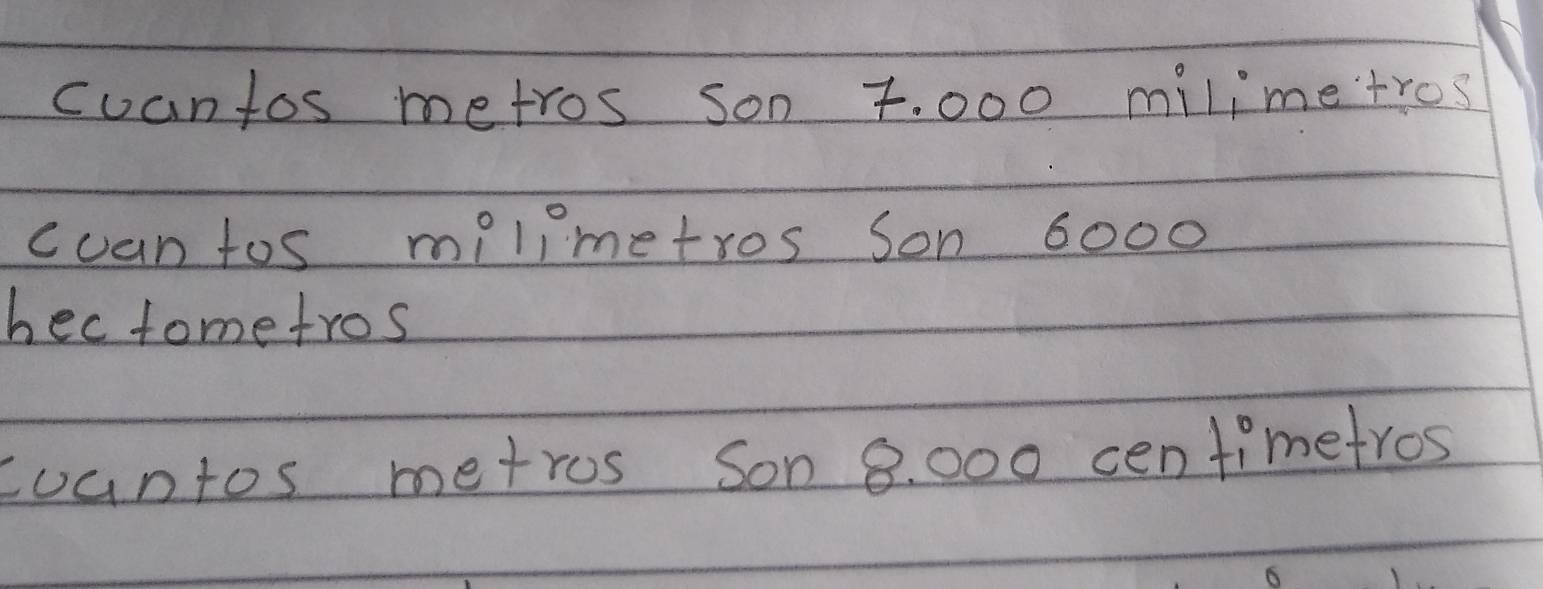 cuantos metros son 7.000 milimetros
cuantos milimetros son 6000
hectometros
cuantos metros son 8.000 centimetros